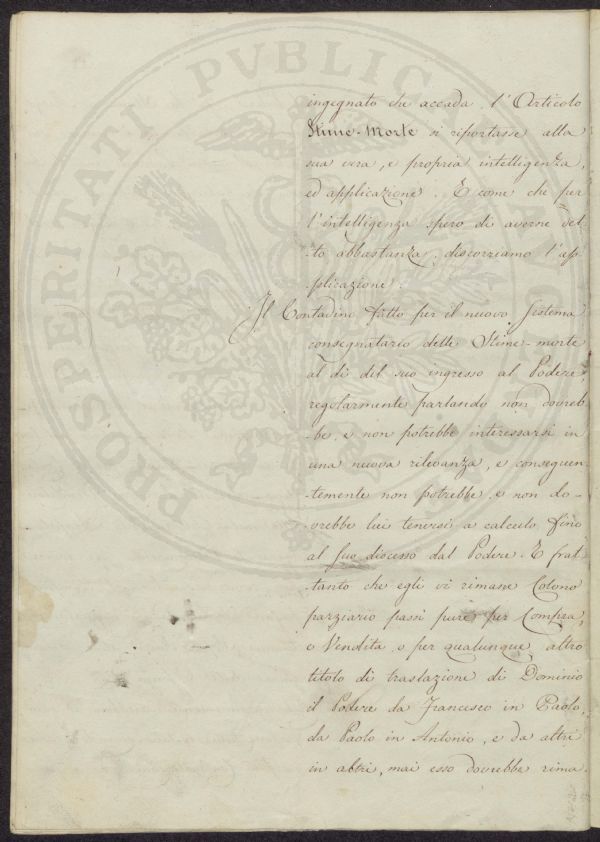 PROSPERITATI PVBLICAE
ingegnato che accada, l'Articolo
Stime-Morte si riportasse alla
sua vera, e propria intelligenza,
ed applicazione. E come che per
l'intelligenza spero di averne det-
-to abbastanza, discorriamo l'ap-
-plicazione.
Il Contadino fatto per il nuovo sistema
consegnatario delle Stime-morte
al dì del suo ingresso al Podere,
regolarmente parlando non dovreb-
-be, e non potrebbe interessarsi in
una nuova rilevanza, e conseguen-
-temente non potrebbe, e non do-
-vrebbe lui tenersi a calcolo fino
al suo diocesso dal Podere. E frat-
tanto che egli vi rimane Colono
parziario passi pure per Compra,
o Vendita, o per qualunque altro
titolo di traslazione di Dominio
il Podere da Francesco in Paolo,
da Paolo in Antonio, e da altri
in altri, mai esso dovrebbe rima-